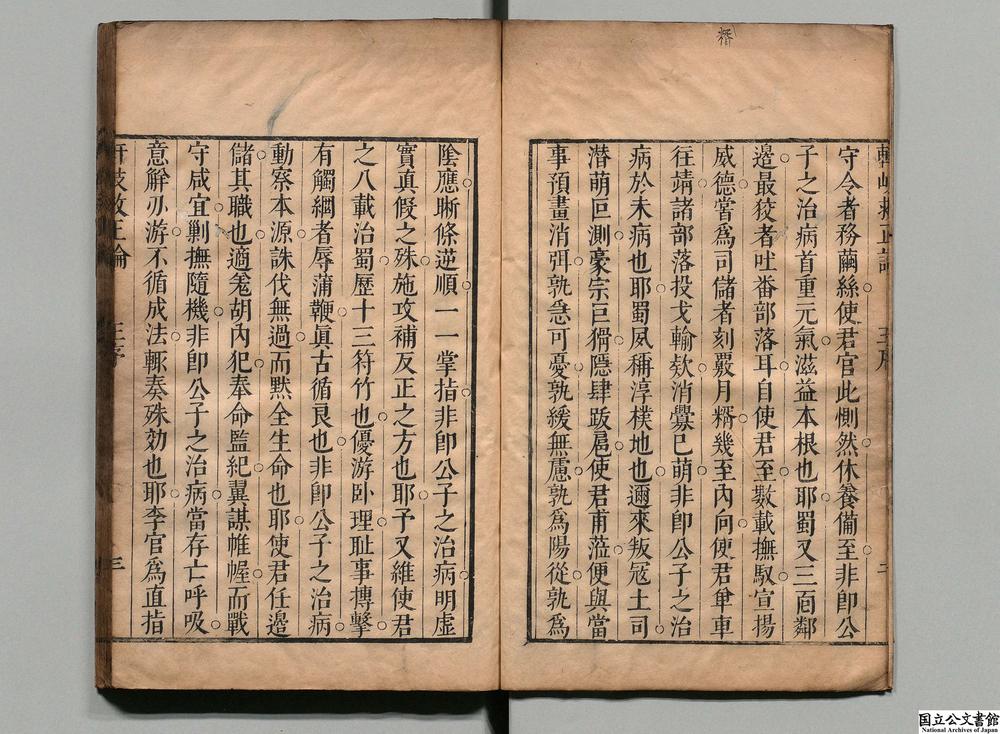 糈
軒岐救正論 王序 二
守令者務繭絲使君官此惻然休養備至非卽公
子之治病首重元氣滋益本根也耶蜀又三面鄰
邊最狡者吐番部落耳自使君至數載撫馭宣揚
威德嘗爲司儲者刻覈月糈幾至內向使君單車
往靖諸部落投戈輸欵消釁已萌非卽公子之治
病於未病也耶蜀夙稱淳樸地也邇來叛冦土司
潜萌叵測豪宗巨猾隱肆跋扈使君甫蒞便與當
事預畫消弭孰急可憂孰緩無慮孰爲陽從孰爲
陰應晰條逆順一一掌指非卽公子之治病明虛
實真假之殊施攻補反正之方也耶予又維使君
之八載治蜀歷十三符竹也優游卧理耻事摶擊
有觸綱者辱蒲鞭眞古循良也非卽公子之治病
動察本源誅伐無過而黙全生命也耶使君任邊
儲其職也適逢胡內犯奉命監紀翼謀帷幄而戰
守咸宜剿撫隨機非卽公子之治病當存亡呼吸
意解刃游不循成法輒奏殊効也耶李官爲直指
軒岐救正論 王序 三
国立公文書館
National Archives of Japan